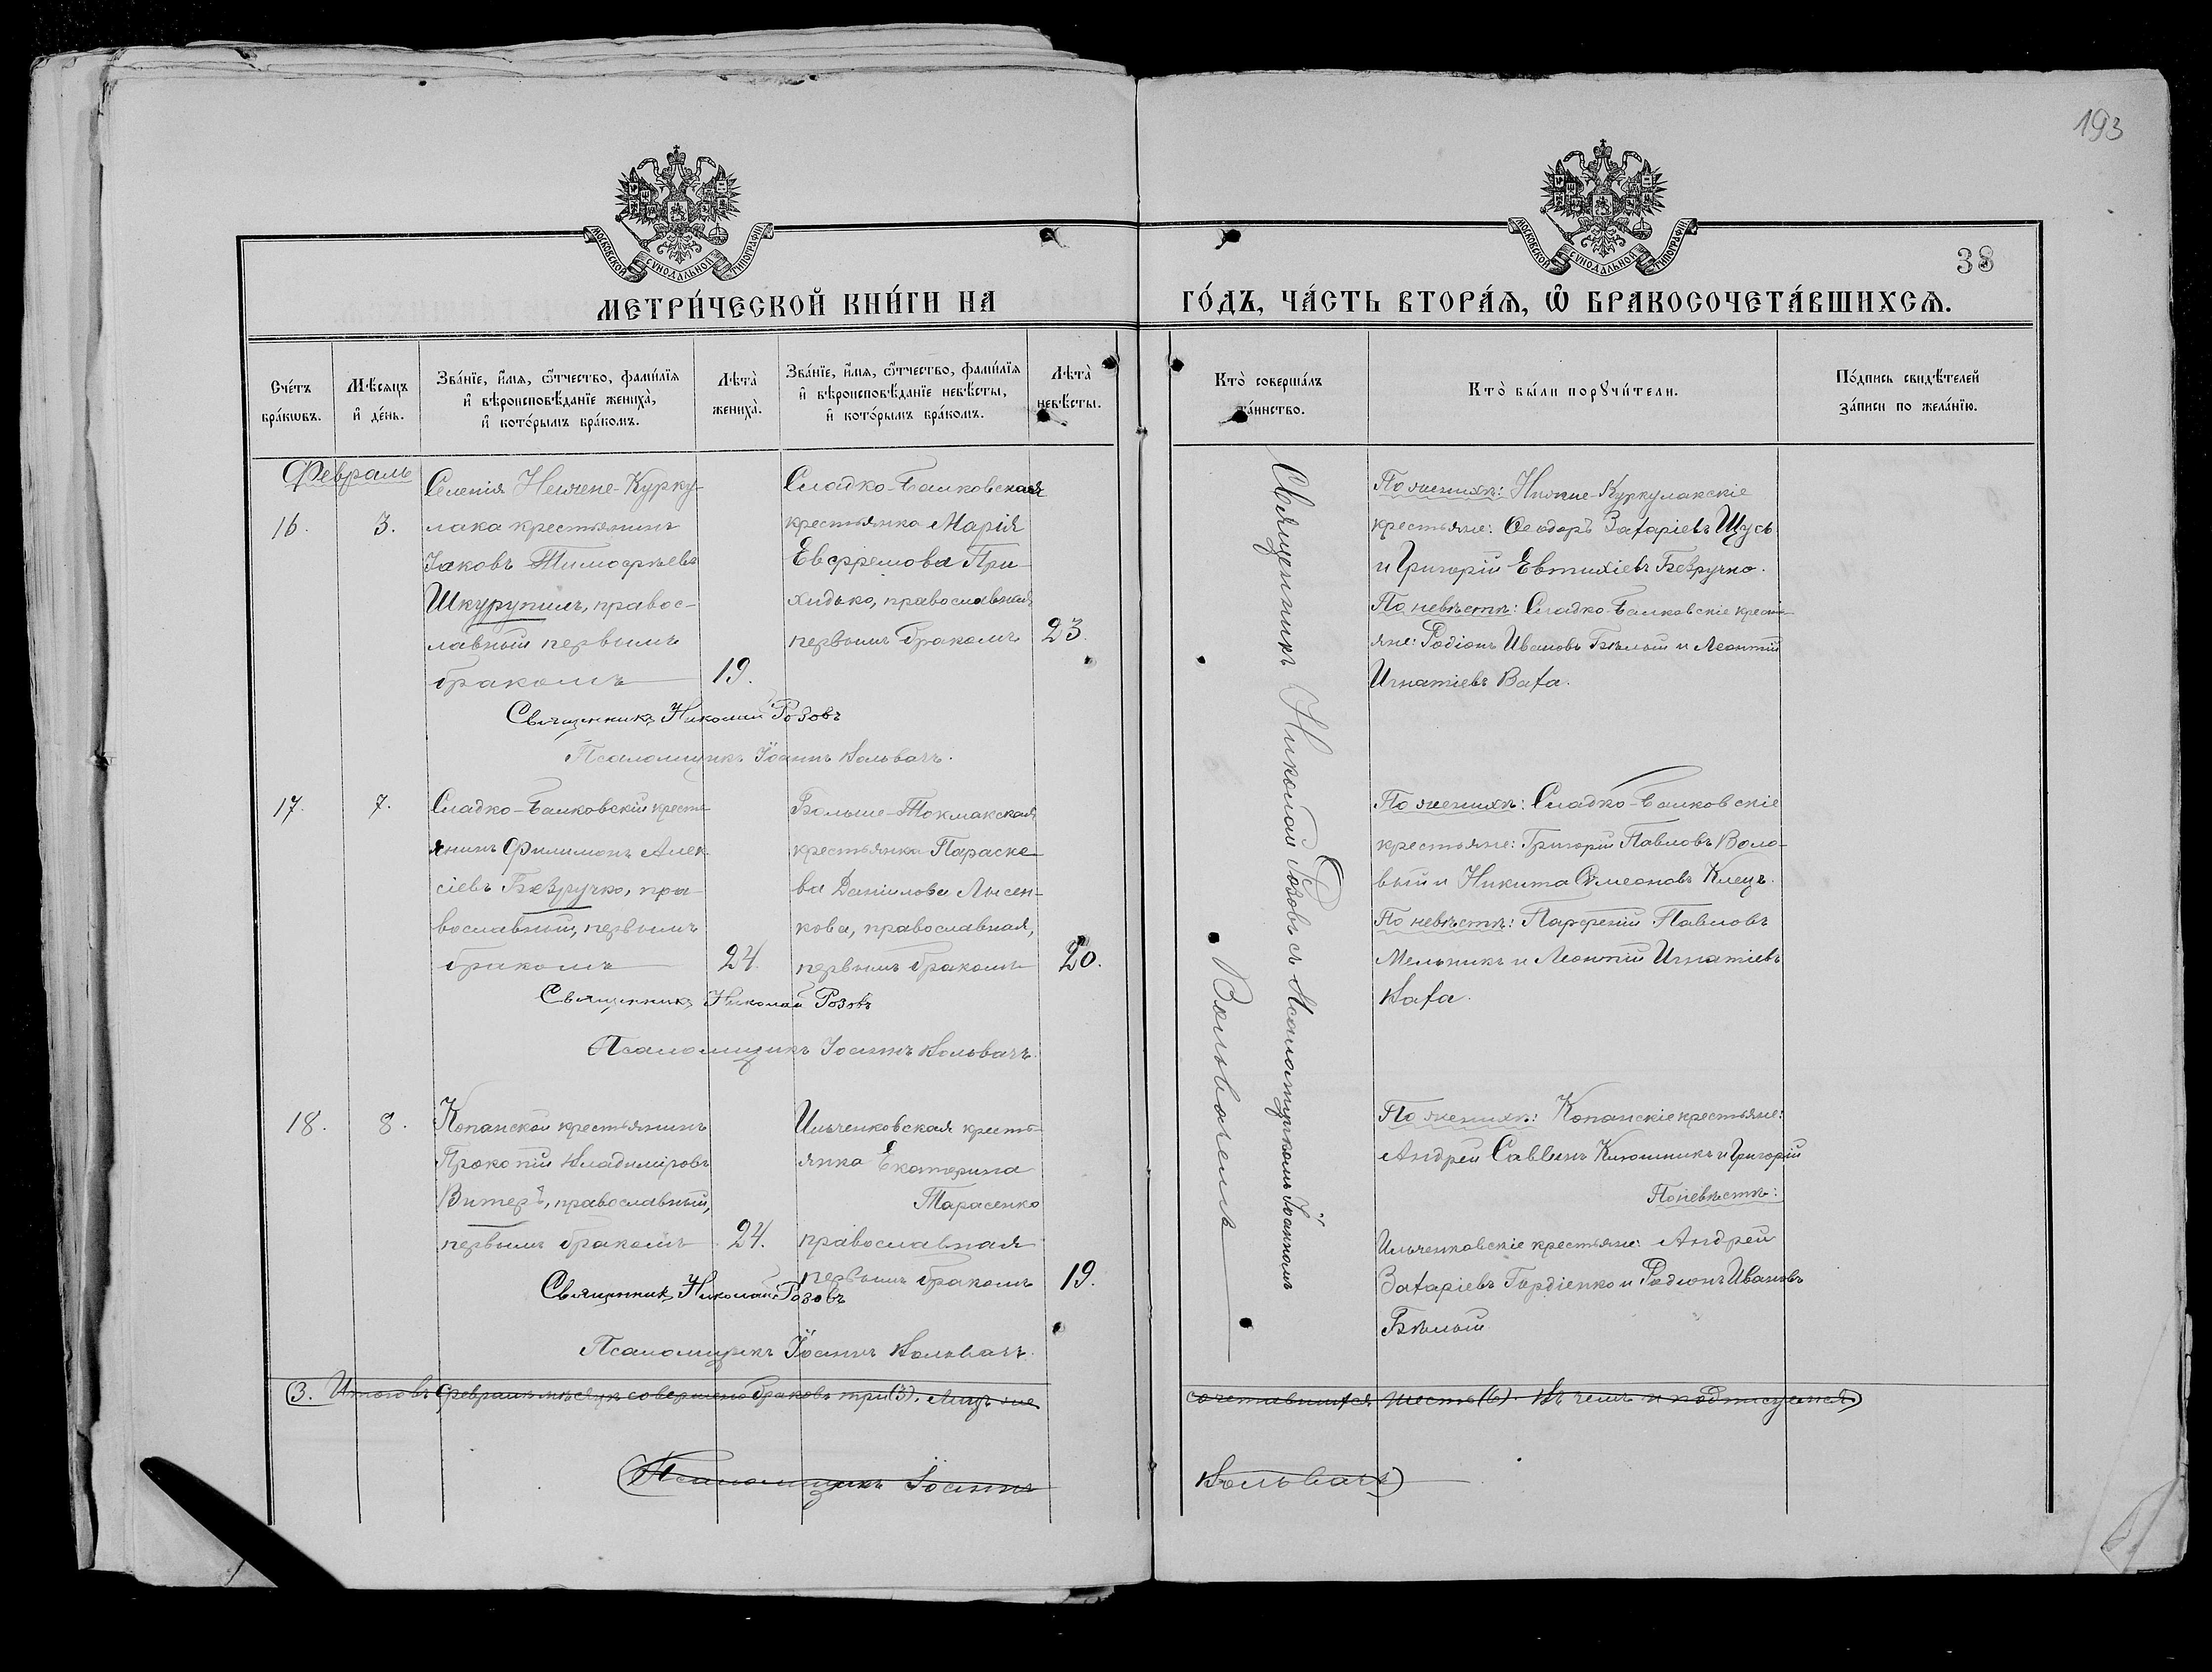 193
МОСКОВСКОЙ СѴНОДАЛЬНОЙ ТИПОГРАФІИ
МОСКОВСКОЙ СѴНОДАЛЬНОЙ ТИПОГРАФІИ
38
МЕТРИ́ЧЕСКОЙ КНИ́ГИ НА
ГО́ДЪ, ЧА́СТЬ ВТОРА́Ѧ, Ѡ҆ БРАКОСОЧЕТА́ВШИХСѦ.
Сче́тъ
бра́кѡвъ.
Мѣ́сѧцъ
и҆ де́нь.
Зва́нїе, и҆́мѧ, ѻ҆́тчество, фами́лїѧ
и҆ вѣроисповѣ́данїе жениха̀,
и҆ кото́рымъ бра́комъ.
Лѣта̀
жениха̀.
Зва́нїе, и҆́мѧ, ѻ҆́тчество, фами́лїѧ
и҆ вѣроисповѣ́данїе невѣ́сты,
и҆ кото́рымъ бра́комъ.
Лѣта̀
невѣ́сты.
Кто̀ соверша́лъ
та́инство.
Кто̀ бы́ли порꙋчи́тели.
По́дпись свидѣ́телей
за́писи по жела́нїю.
Февраль
16.
3.
Селенія Нижне-Курку-
лака крестьянинъ
Іаковъ Тимофѣевъ
Шкурупилъ, правос-
лавный первымъ
бракомъ
19.
Сладко-Балковская
крестьянка Марія
Евфремова При-
хидько, православная
первымъ бракомъ
23.
Священникъ Николай Розовъ
Псаломщикъ Іоаннъ Вольвачъ.
По женихѣ: Нижне-Куркулакскіе
крестьяне: Ѳеодоръ Захаріевъ Щусь
и Григорій Евтихіевъ Безручко.
По невѣстѣ: Сладко-Балковскіе кресть-
яне: Родіонъ Ивановъ Бѣлый и Леонтій
Игнатіевъ Ваха.
17.
7.
Сладко-Балковскій кресть-
янинъ Филимонъ Алек-
сіевъ Безручко, пра-
вославный, первымъ
бракомъ
24.
Больше-Токмакская
крестьянка Параске-
ва Даніилова Лысен-
кова, православная,
первымъ бракомъ
20.
Священникъ Николай Розовъ
Псаломщикъ Іоаннъ Вольвачъ.
По женихѣ: Сладко-Балковскіе
крестьяне: Григорій Павловъ Воло-
вый и Никита Симеоновъ Клецъ.
По невѣстѣ: Парфеній Павловъ
Мельникъ и Леонтій Игнатіевъ
Ваха.
18.
8.
Копанскій крестьянинъ
Прокопій Владиміровъ
Витеръ, православный,
первымъ бракомъ
24.
Ильченковская кресть-
янка Екатерина
Тарасенко
православная
первымъ бракомъ
19.
Священникъ Николай Розовъ
Псаломщикъ Іоаннъ Вольвачъ.
По женихѣ: Копанскіе крестьяне:
Андрей Саввинъ Клюшникъ и Григорій
По невѣстѣ:
Ильченковскіе крестьяне: Андрей
Захаріевъ Гордіенко и Родіонъ Ивановъ
Бѣлый
Священникъ Николай Розовъ съ псаломщикомъ Іоанномъ
Вольвачемъ
(3. Итого въ Февралѣ мѣсяцѣ совершено браковъ три (3). Лицъ же
сочетавшихся шесть (6). Въ чемъ и подписуемся)
(Псаломщикъ Іоаннъ
Вольвачъ)